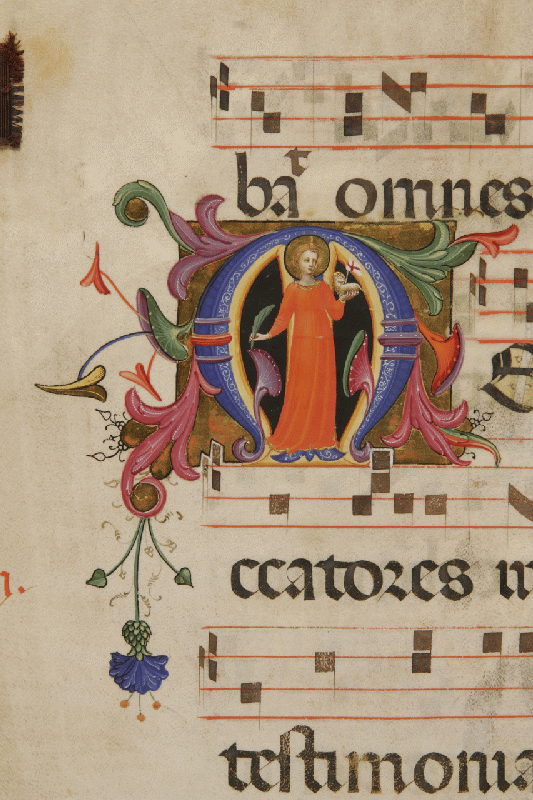 bat omnes
M E
ccatores
testimonia